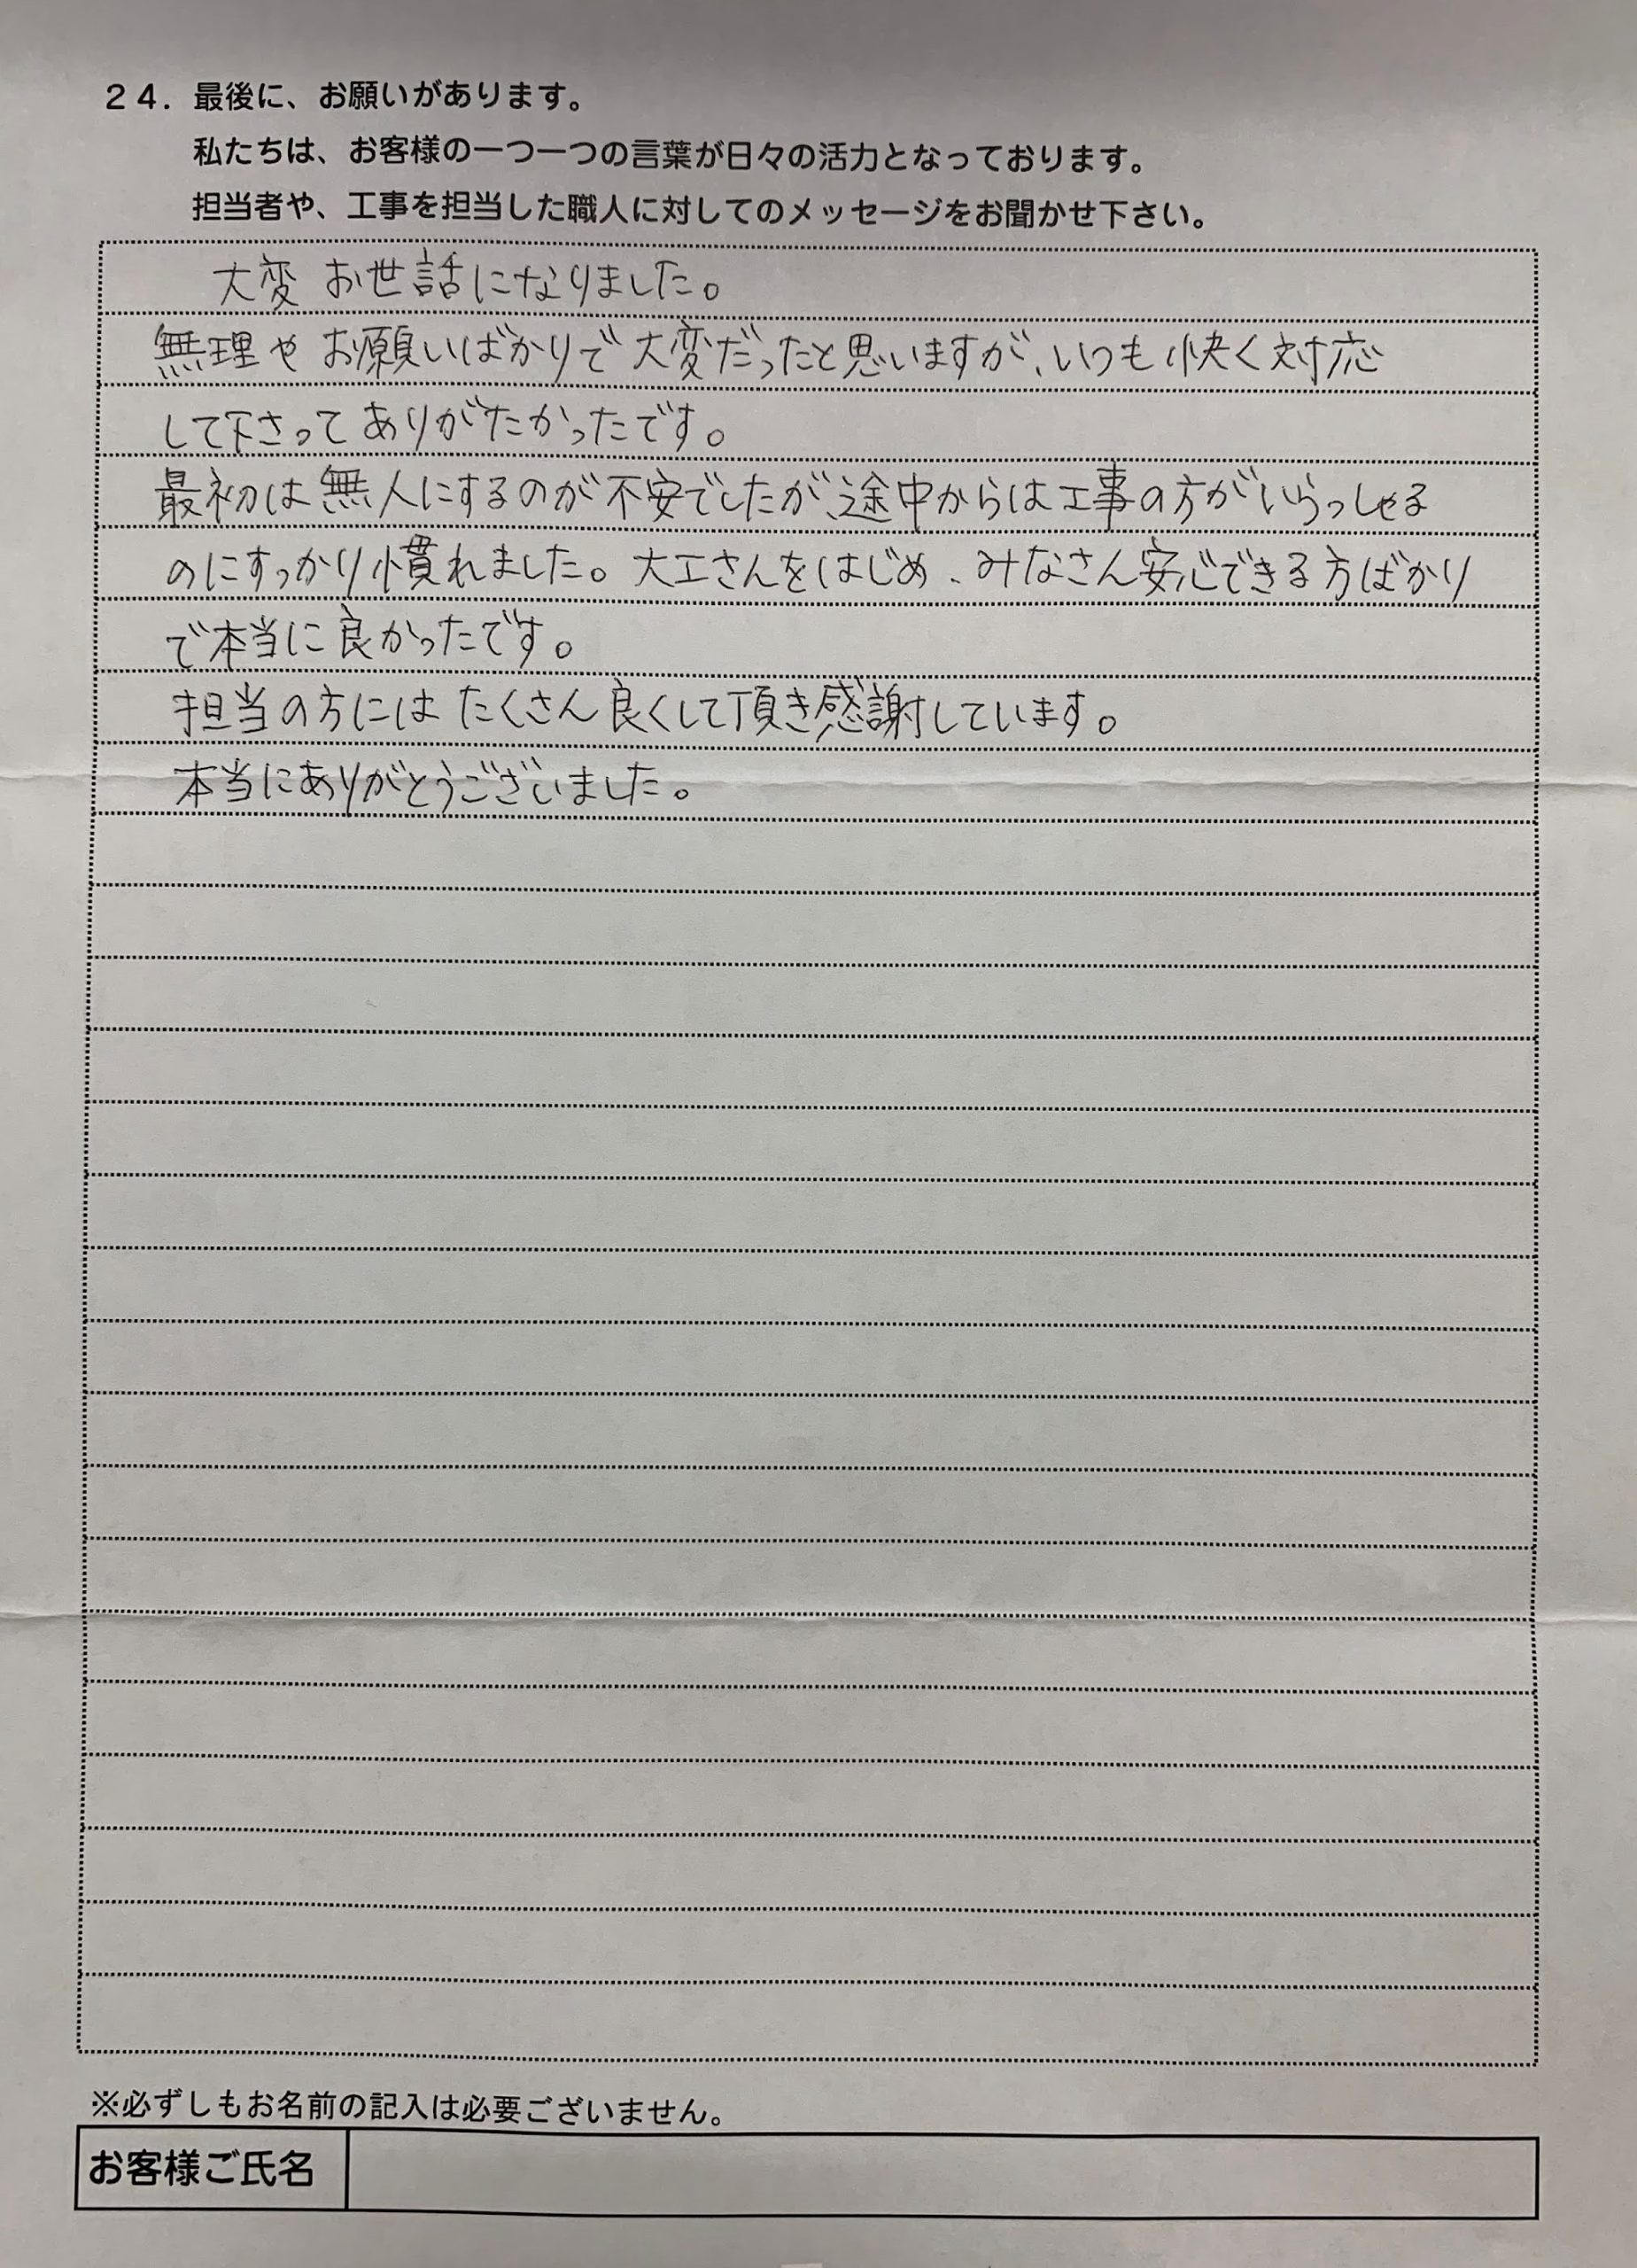 24. 最後に、お願いがあります。
私たちは、お客様の一つ一つの言葉が日々の活力となっております。
担当者や、工事を担当した職人に対してのメッセージをお聞かせ下さい。
大変 お世話になりました。
無理や お願いばかりで 大変だったと思いますが、いつも 快く 対応
して下さって ありがたかったです。
最初は 無人にするのが 不安でしたが、途中からは 工事の方が いらっしゃる
のにすっかり 慣れました。大工さんをはじめ、みなさん 安心できる 方ばかり
で本当に 良かったです。
担当の方には たくさん 良くして頂き 感謝しています。
本当にありがとうございました。
※必ずしもお名前の記入は必要ございません。
お客様ご氏名